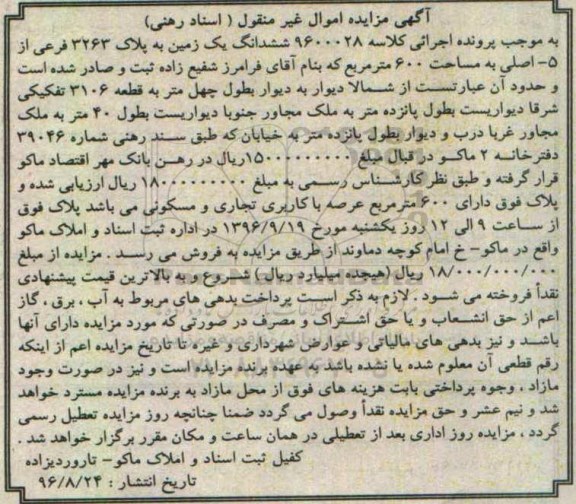 آگهی مزایده اموال غیر منقول ( اسناد رهنی)
به موجب پرونده اجرائی کلاسه ۹۶۰۰۰۲۸ ششدانگ یک زمین به پلاک ۳۲۶۳ فرعی از
۵- اصلی به مساحت ۶۰۰ مترمربع که بنام آقای فرامرز شفیع زاده ثبت و صادر شده است
و حدود آن عبارتست از شمالا دیوار به دیوار بطول چهل متر به قطعه ۳۱۰۶ تفکیکی
شرقا دیواریست بطول پانزده متر به ملک مجاور جنوبا دیواریست بطول ۴۰ متر به ملک
مجاور غربا درب و دیوار بطول پانزده متر به خیابان که طبق سند رهنی شماره ۳۹۰۴۶
دفترخانه ۲ ماکو در قبال مبلغ ۱۵۰۰۰۰۰۰۰۰۰ریال در رهن بانک مهر اقتصاد ماکو
قرار گرفته و طبق نظر کارشناس رسمی به مبلغ ۱۸۰۰۰۰۰۰۰۰۰ ریال ارزیابی شده و
پلاک فوق دارای ۶۰۰ مترمربع عرصه با کاربری تجاری و مسکونی می باشد پلاک فوق
از ساعت ۹ الی ۱۲ روز یکشنبه مورخ ۱۳۹۶/۹/۱۹ در اداره ثبت اسناد و املاک ماکو
واقع در ماکو- خ امام کوچه دماوند از طریق مزایده به فروش می رسد . مزایده از مبلغ
۱۸/۰۰۰/۰۰۰/۰۰۰ ریال (هیجده میلیارد ریال ) شروع و به بالاترین قیمت پیشنهادی
نقداً فروخته می شود . لازم به ذکر است پرداخت بدهی های مربوط به آب ، برق ، گاز
اعم از حق انشعاب و یا حق اشتراک و مصرف در صورتی که مورد مزایده دارای آنها
باشد و نیز بدهی های مالیاتی و عوارض شهرداری و غیره تا تاریخ مزایده اعم از اینکه
رقم قطعی آن معلوم شده یا نشده باشد به عهده برنده مزایده است و نیز در صورت وجود
مازاد ، وجوه پرداختی بابت هزینه های فوق از محل مازاد به برنده مزایده مسترد خواهد
شد و نیم عشر و حق مزایده نقداً وصول می گردد ضمنا چنانچه روز مزایده تعطیل رسمی
گردد ، مزایده روز اداری بعد از تعطیلی در همان ساعت و مکان مقرر برگزار خواهد شد .
کفیل ثبت اسناد و املاک ماکو- تاروردیزاده
تاریخ انتشار : ۹۶/۸/۲۴